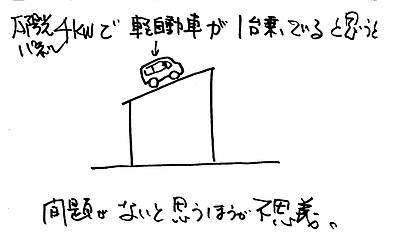 太陽光4kwで 軽自動車が1台乗っていると思うと
パネル
問題がないと思うほうが不思議。